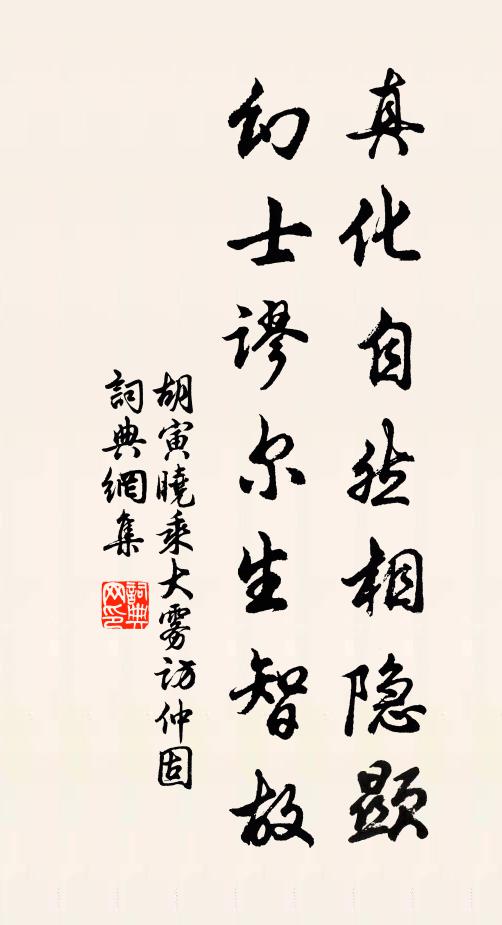 真化自然相隐顕
幻士谬尔生智故
胡寅曉乘大雾访仲固
詞典網集
詞典网印